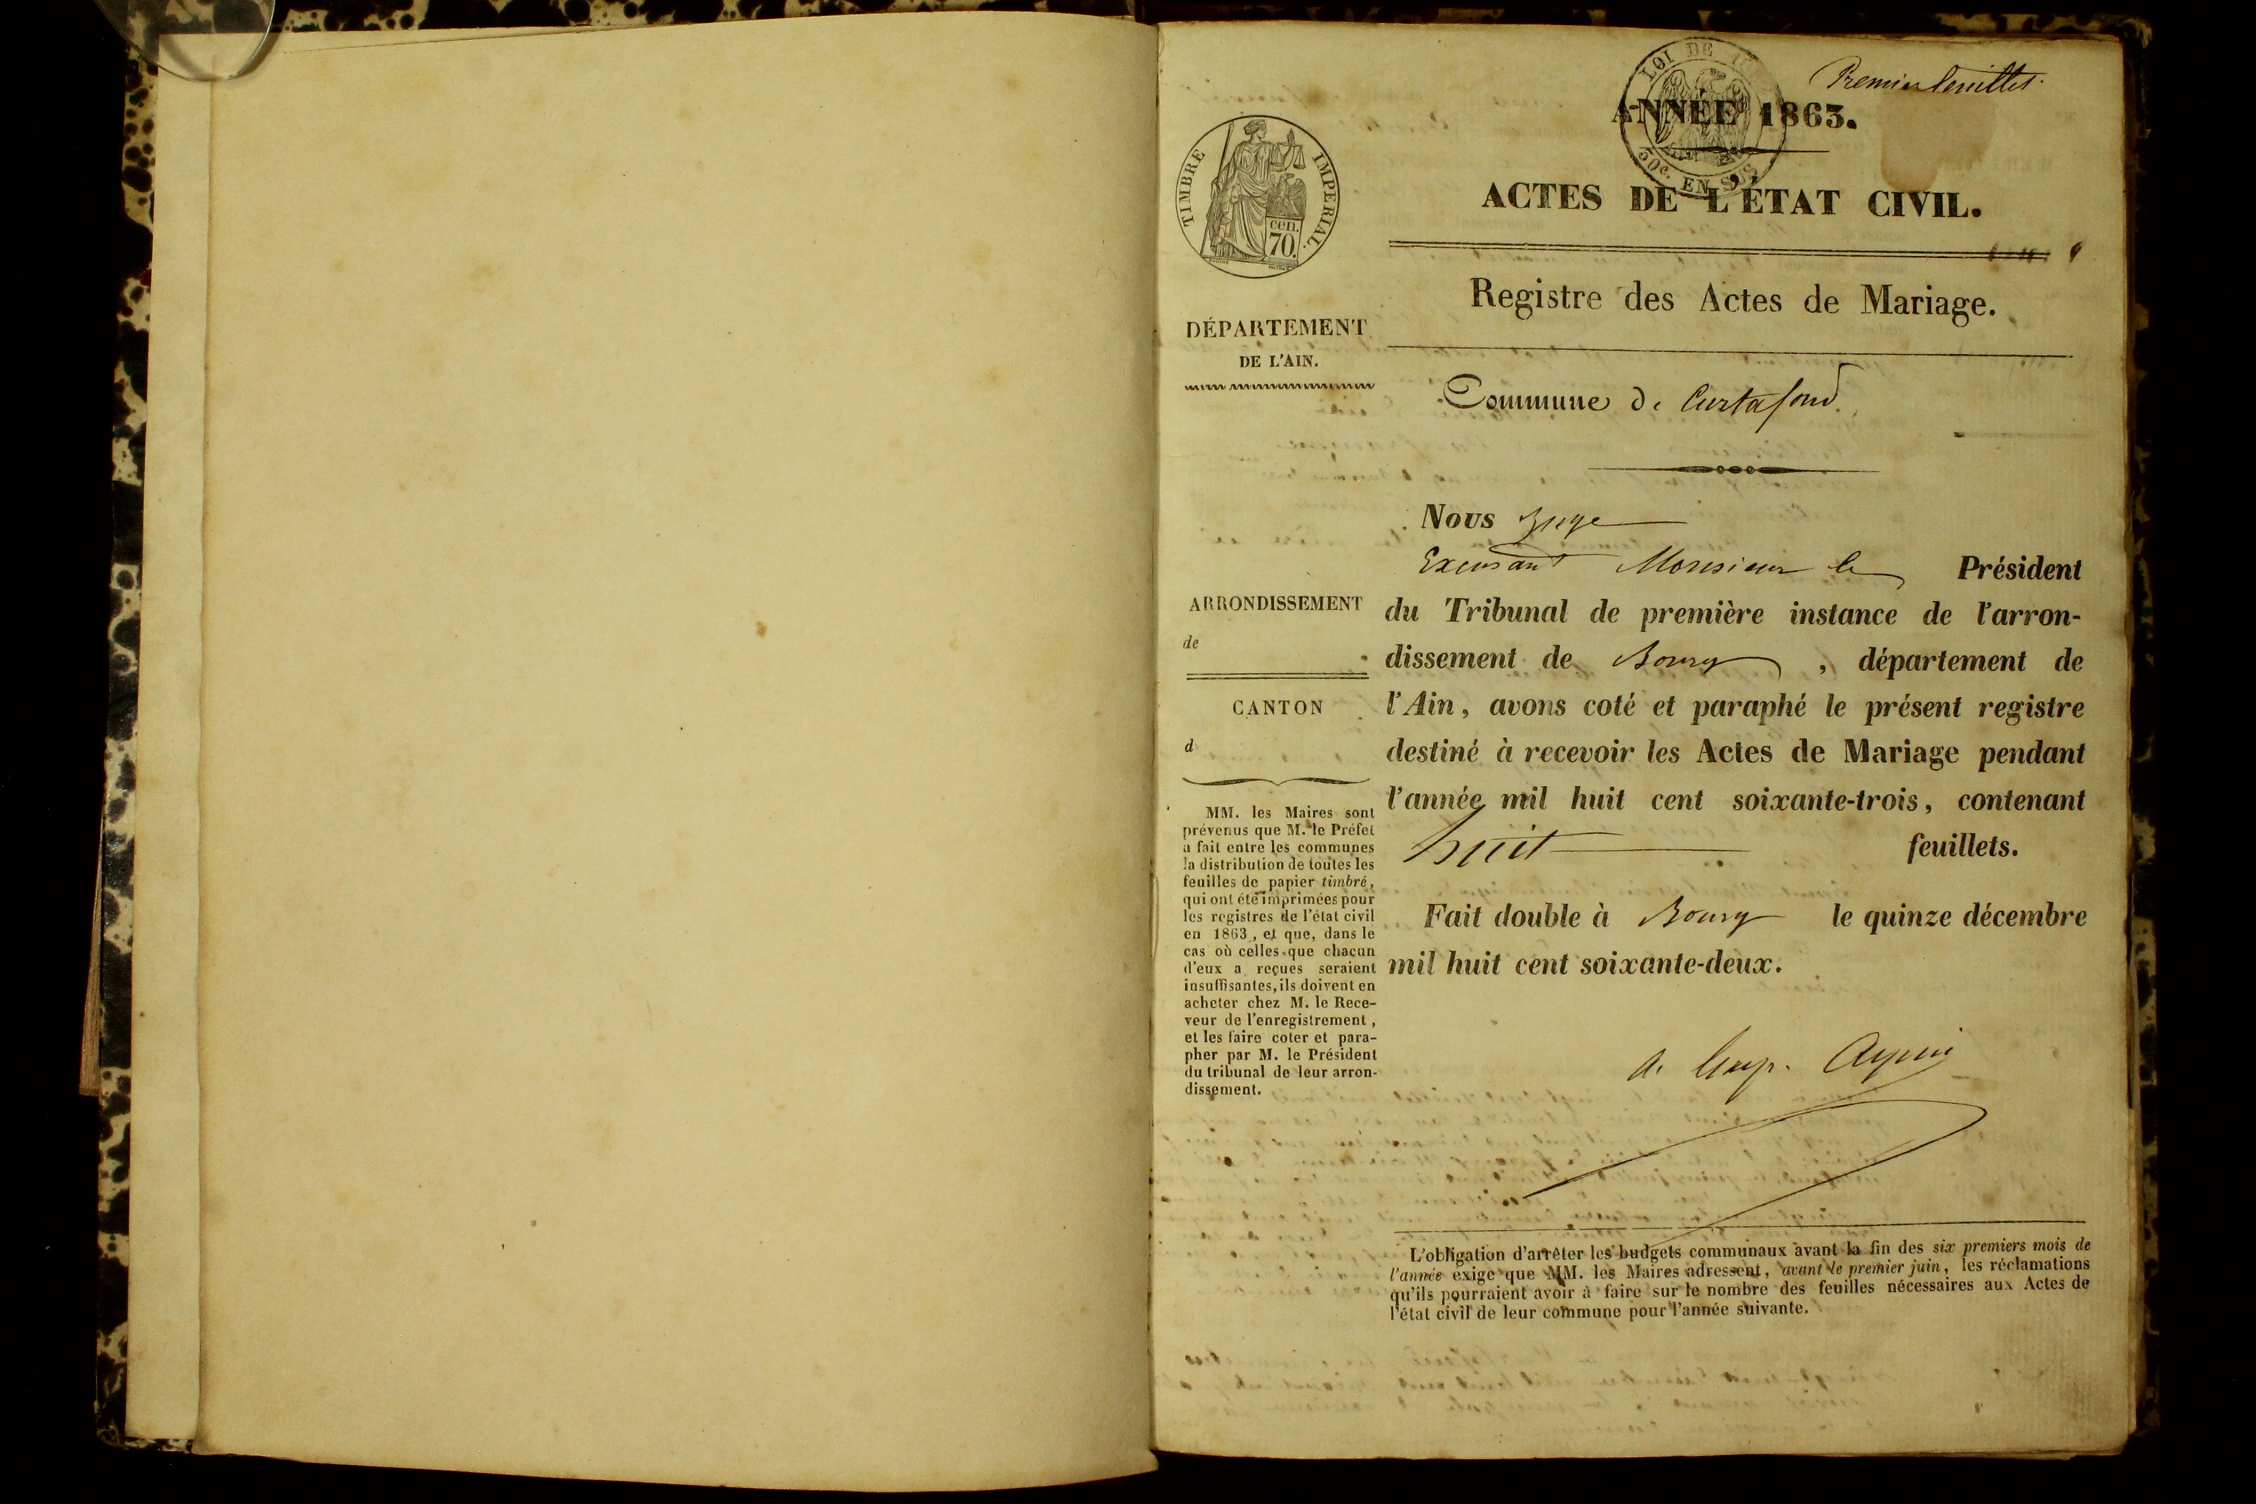 Premier feuillet.
LOI DE
30c. EN SUS
ANNÉE 1863.
ACTES DE L'ÉTAT CIVIL.
TIMBRE IMPÉRIAL.
cen.
70.
Registre des Actes de Mariage.
DÉPARTEMENT
DE L'AIN.
Commune de Curtafond
ARRONDISSEMENT
de
CANTON
d
MM. les Maires sont
prévenus que M. le Préfet
a fait entre les communes
la distribution de toutes les
feuilles de papier timbré,
qui ont été imprimées pour
les registres de l'état civil
en 1863, et que, dans le
cas où celles que chacun
d'eux a reçues seraient
insuffisantes, ils doivent en
acheter chez M. le Rece-
veur de l'enregistrement,
et les faire coter et para-
pher par M. le Président
du tribunal de leur arron-
dissement.
Nous Juge
Excusant Monsieur le Président
du Tribunal de première instance de l'arron-
dissement de Bourg, département de
l'Ain, avons coté et paraphé le présent registre
destiné à recevoir les Actes de Mariage pendant
l'année mil huit cent soixante-trois, contenant
huit feuillets.
Fait double à Bourg le quinze décembre
mil huit cent soixante-deux.
L'obligation d'arrêter les budgets communaux avant la fin des six premiers mois de
l'année exige que MM. les Maires adressent, avant le premier juin, les réclamations
qu'ils pourraient avoir à faire sur le nombre des feuilles nécessaires aux Actes de
l'état civil de leur commune pour l'année suivante.